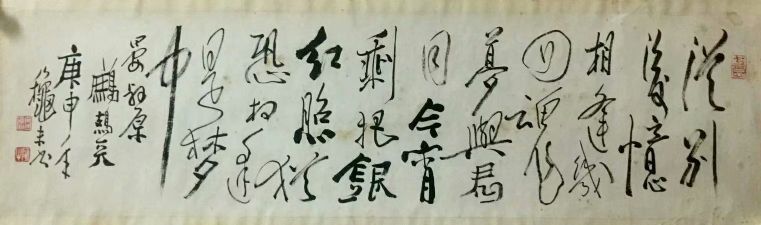 從别
後憶
相逢幾
回魂
夢與君
同今宵
剩把銀
红照猶
恐相逢
是梦
中
晏叔原
鷓鴣天
庚申年